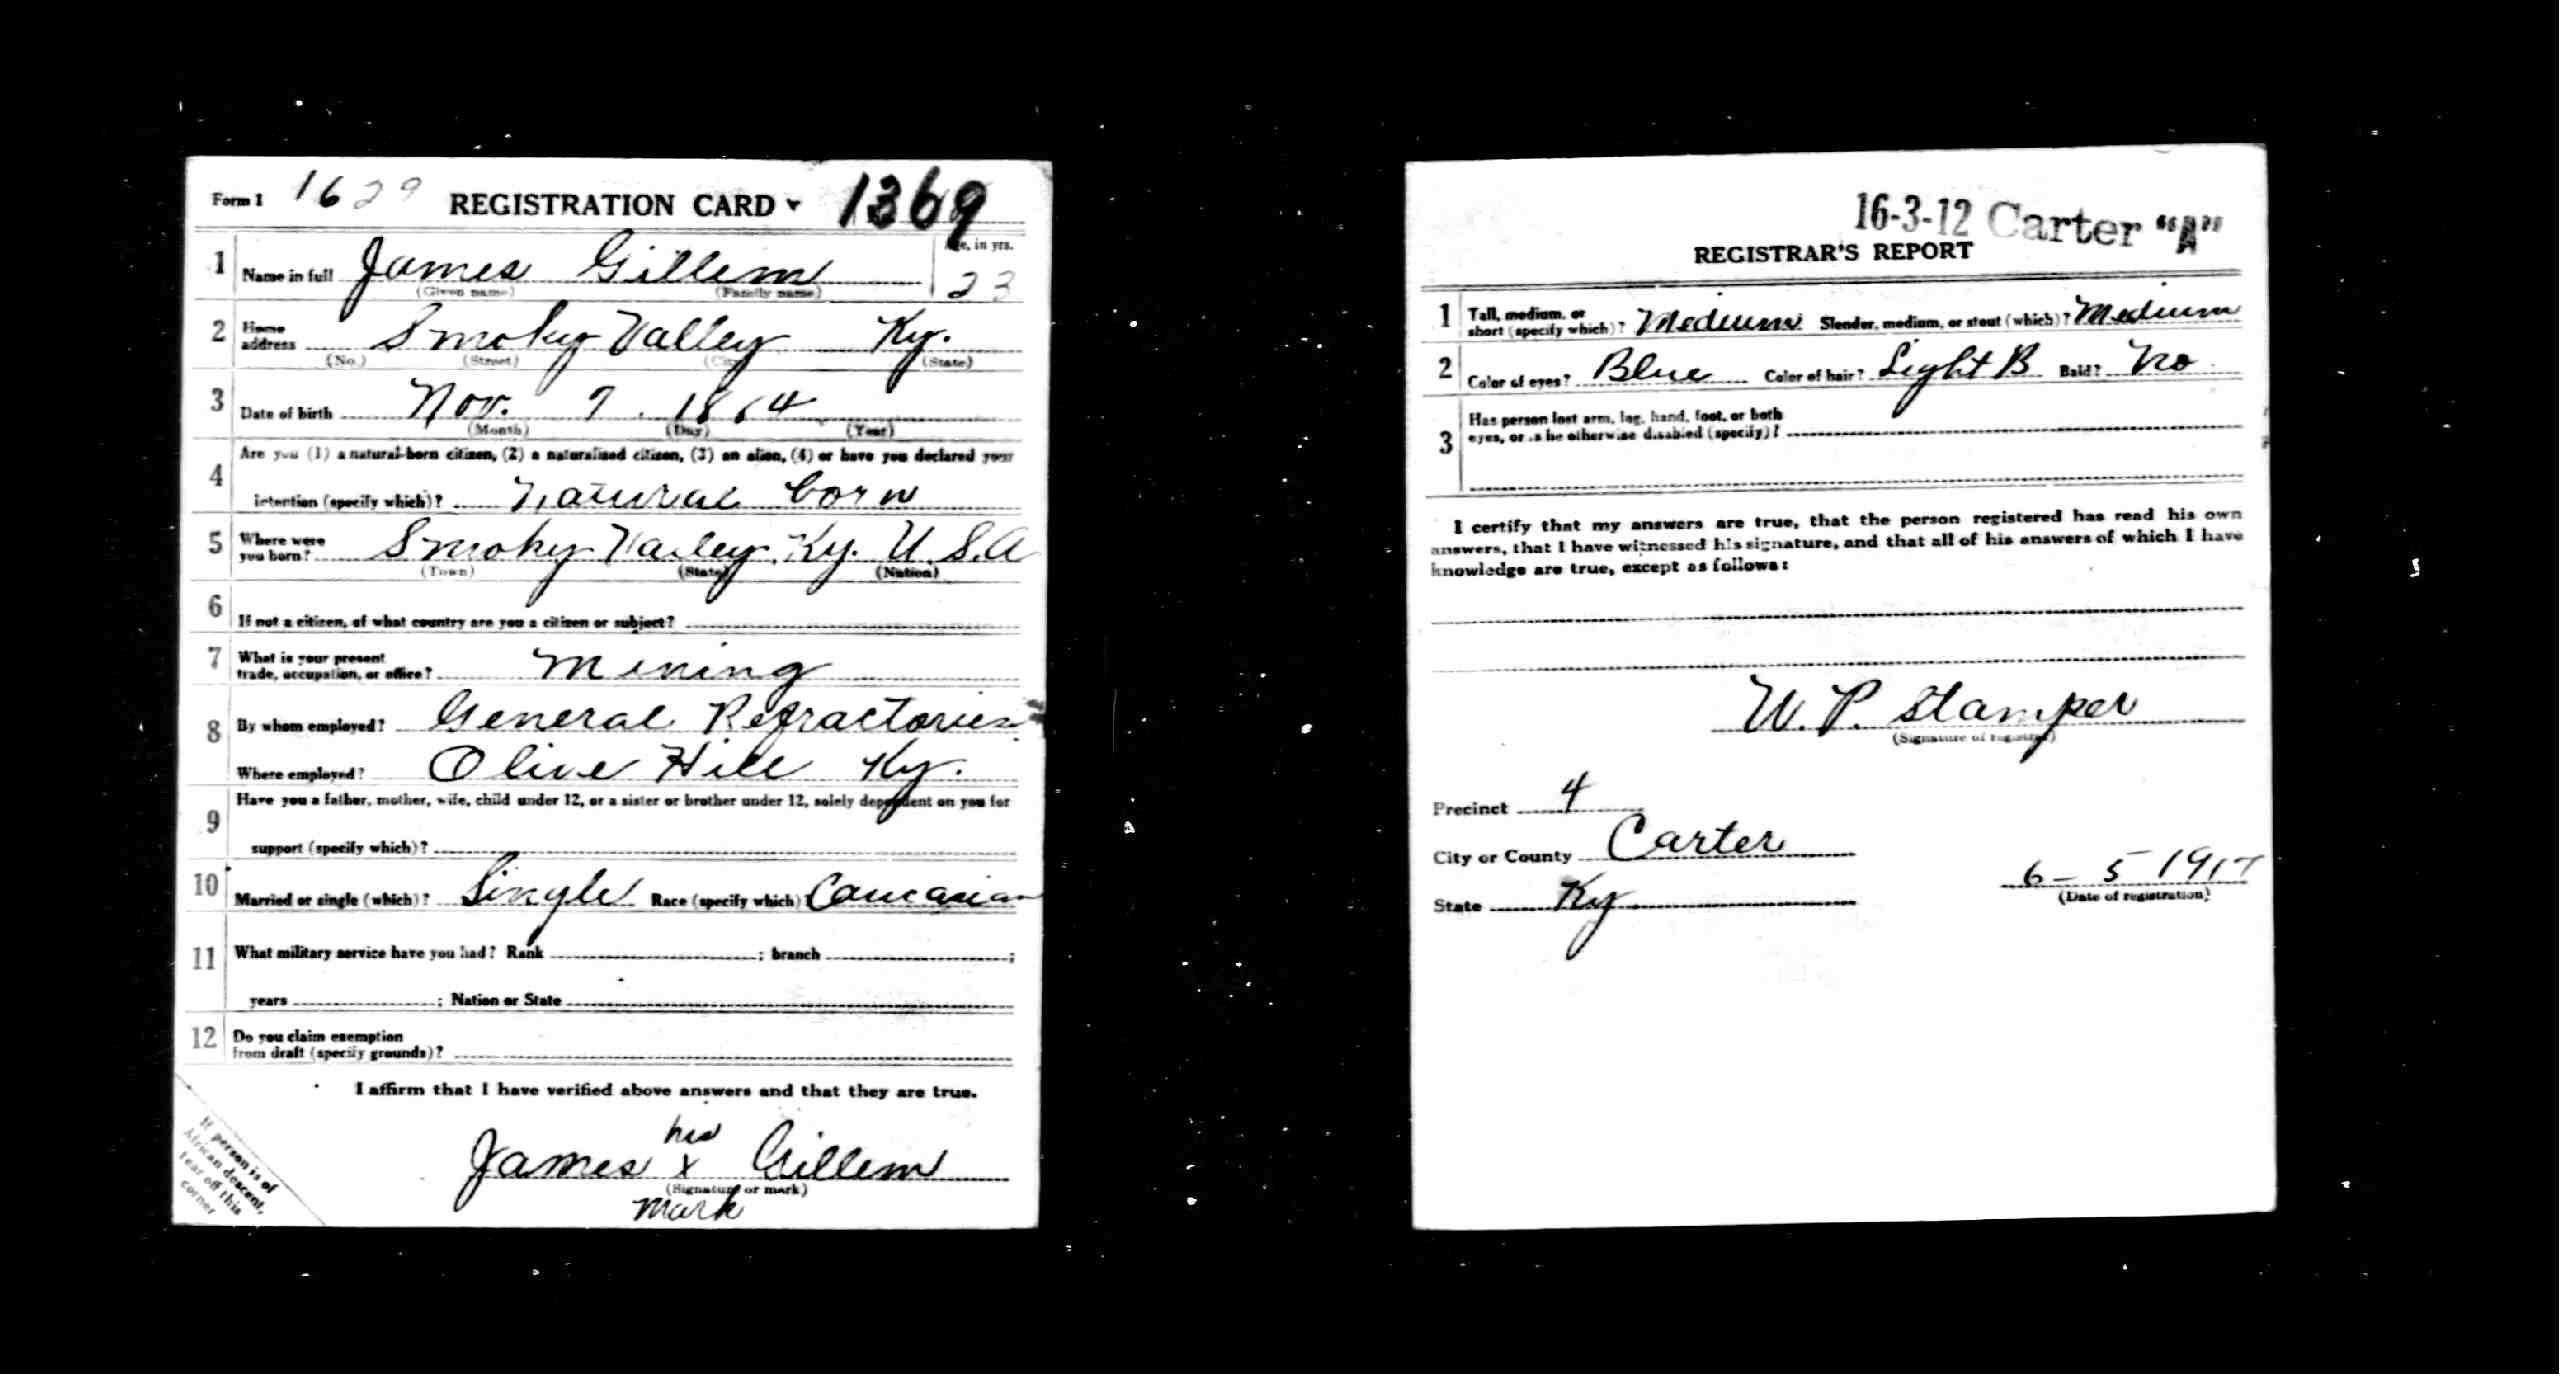 Form 1 1629 REGISTRATION CARD 1369
1 Name in full James Gillem Age, in yrs. 23
(Given name) (Family name)
2 Home address Smoky Valley Ky.
(No.) (Street) (City) (State)
3 Date of birth Nov. 7
(Month) (Day) (Year)
4 Are you (1) a natural-born citizen, (2) a naturalized citizen, (3) an alien, (4) or have you declared your
intention (specify which)? Natural born
5 Where were you born? Smoky Valley, Ky. U.S.A
(Town) (State) (Nation)
6 If not a citizen, of what country are you a citizen or subject?
7 What is your present trade, occupation, or office? Mining
8 By whom employed? General Refractories
Where employed? Olive Hill Ky.
9 Have you a father, mother, wife, child under 12, or a sister or brother under 12, solely dependent on you for
support (specify which)?
10 Married or single (which)? Single Race (specify which) Caucasian
11 What military service have you had? Rank ; branch ;
years ; Nation or State
12 Do you claim exemption
from draft (specify grounds)?
I affirm that I have verified above answers and that they are true.
his
James x Gillem
(Signature or mark)
mark
If person is of
African descent,
tear off this
corner
16-3-12 Carter "A"
REGISTRAR'S REPORT
1 Tall, medium, or short (specify which)? Medium Slender, medium, or stout (which)? Medium
2 Color of eyes? Blue Color of hair? Light B Bald? No
3 Has person lost arm, leg, hand, foot, or both
eyes, or is he otherwise disabled (specify)?
I certify that my answers are true, that the person registered has read his own
answers, that I have witnessed his signature, and that all of his answers of which I have
knowledge are true, except as follows:
W. P. Stamper
(Signature of registrar)
Precinct 4
City or County Carter
State Ky
6 - 5 1917
(Date of registration)